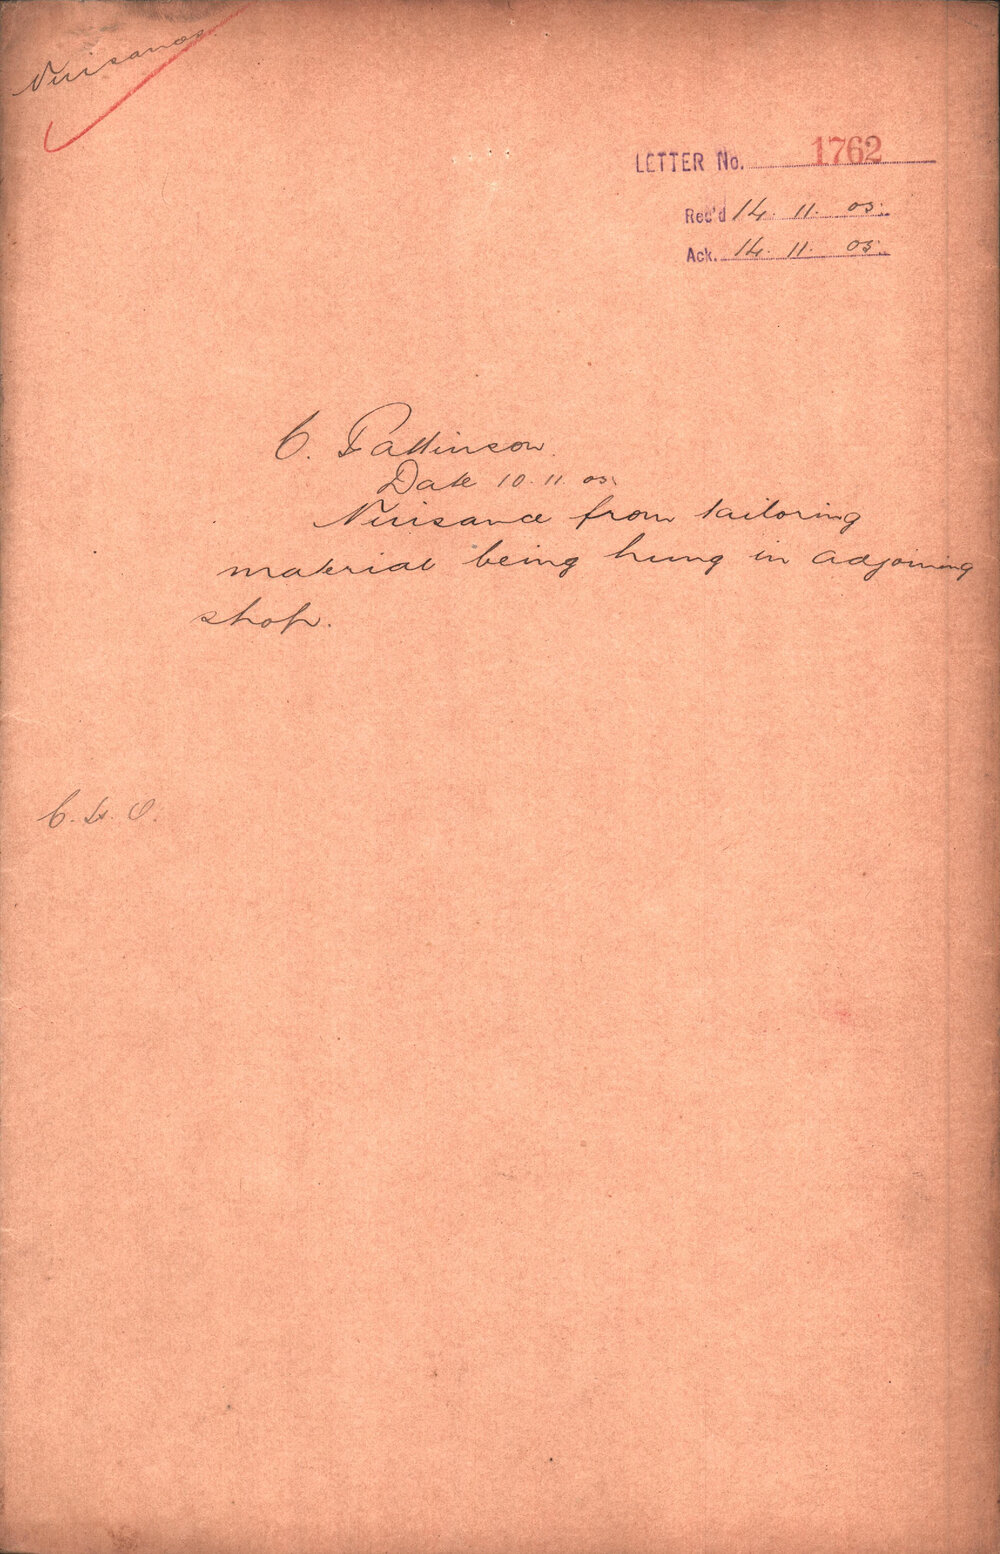 Nuisances.
LETTER No. 1762
Rec'd 14. 11. 05.
Ack. 14. 11. 05.
C. Pattinson.
Date 10. 11. 05.
Nuisance from tailoring
material being hung in adjoining
shop.
C. H. O.